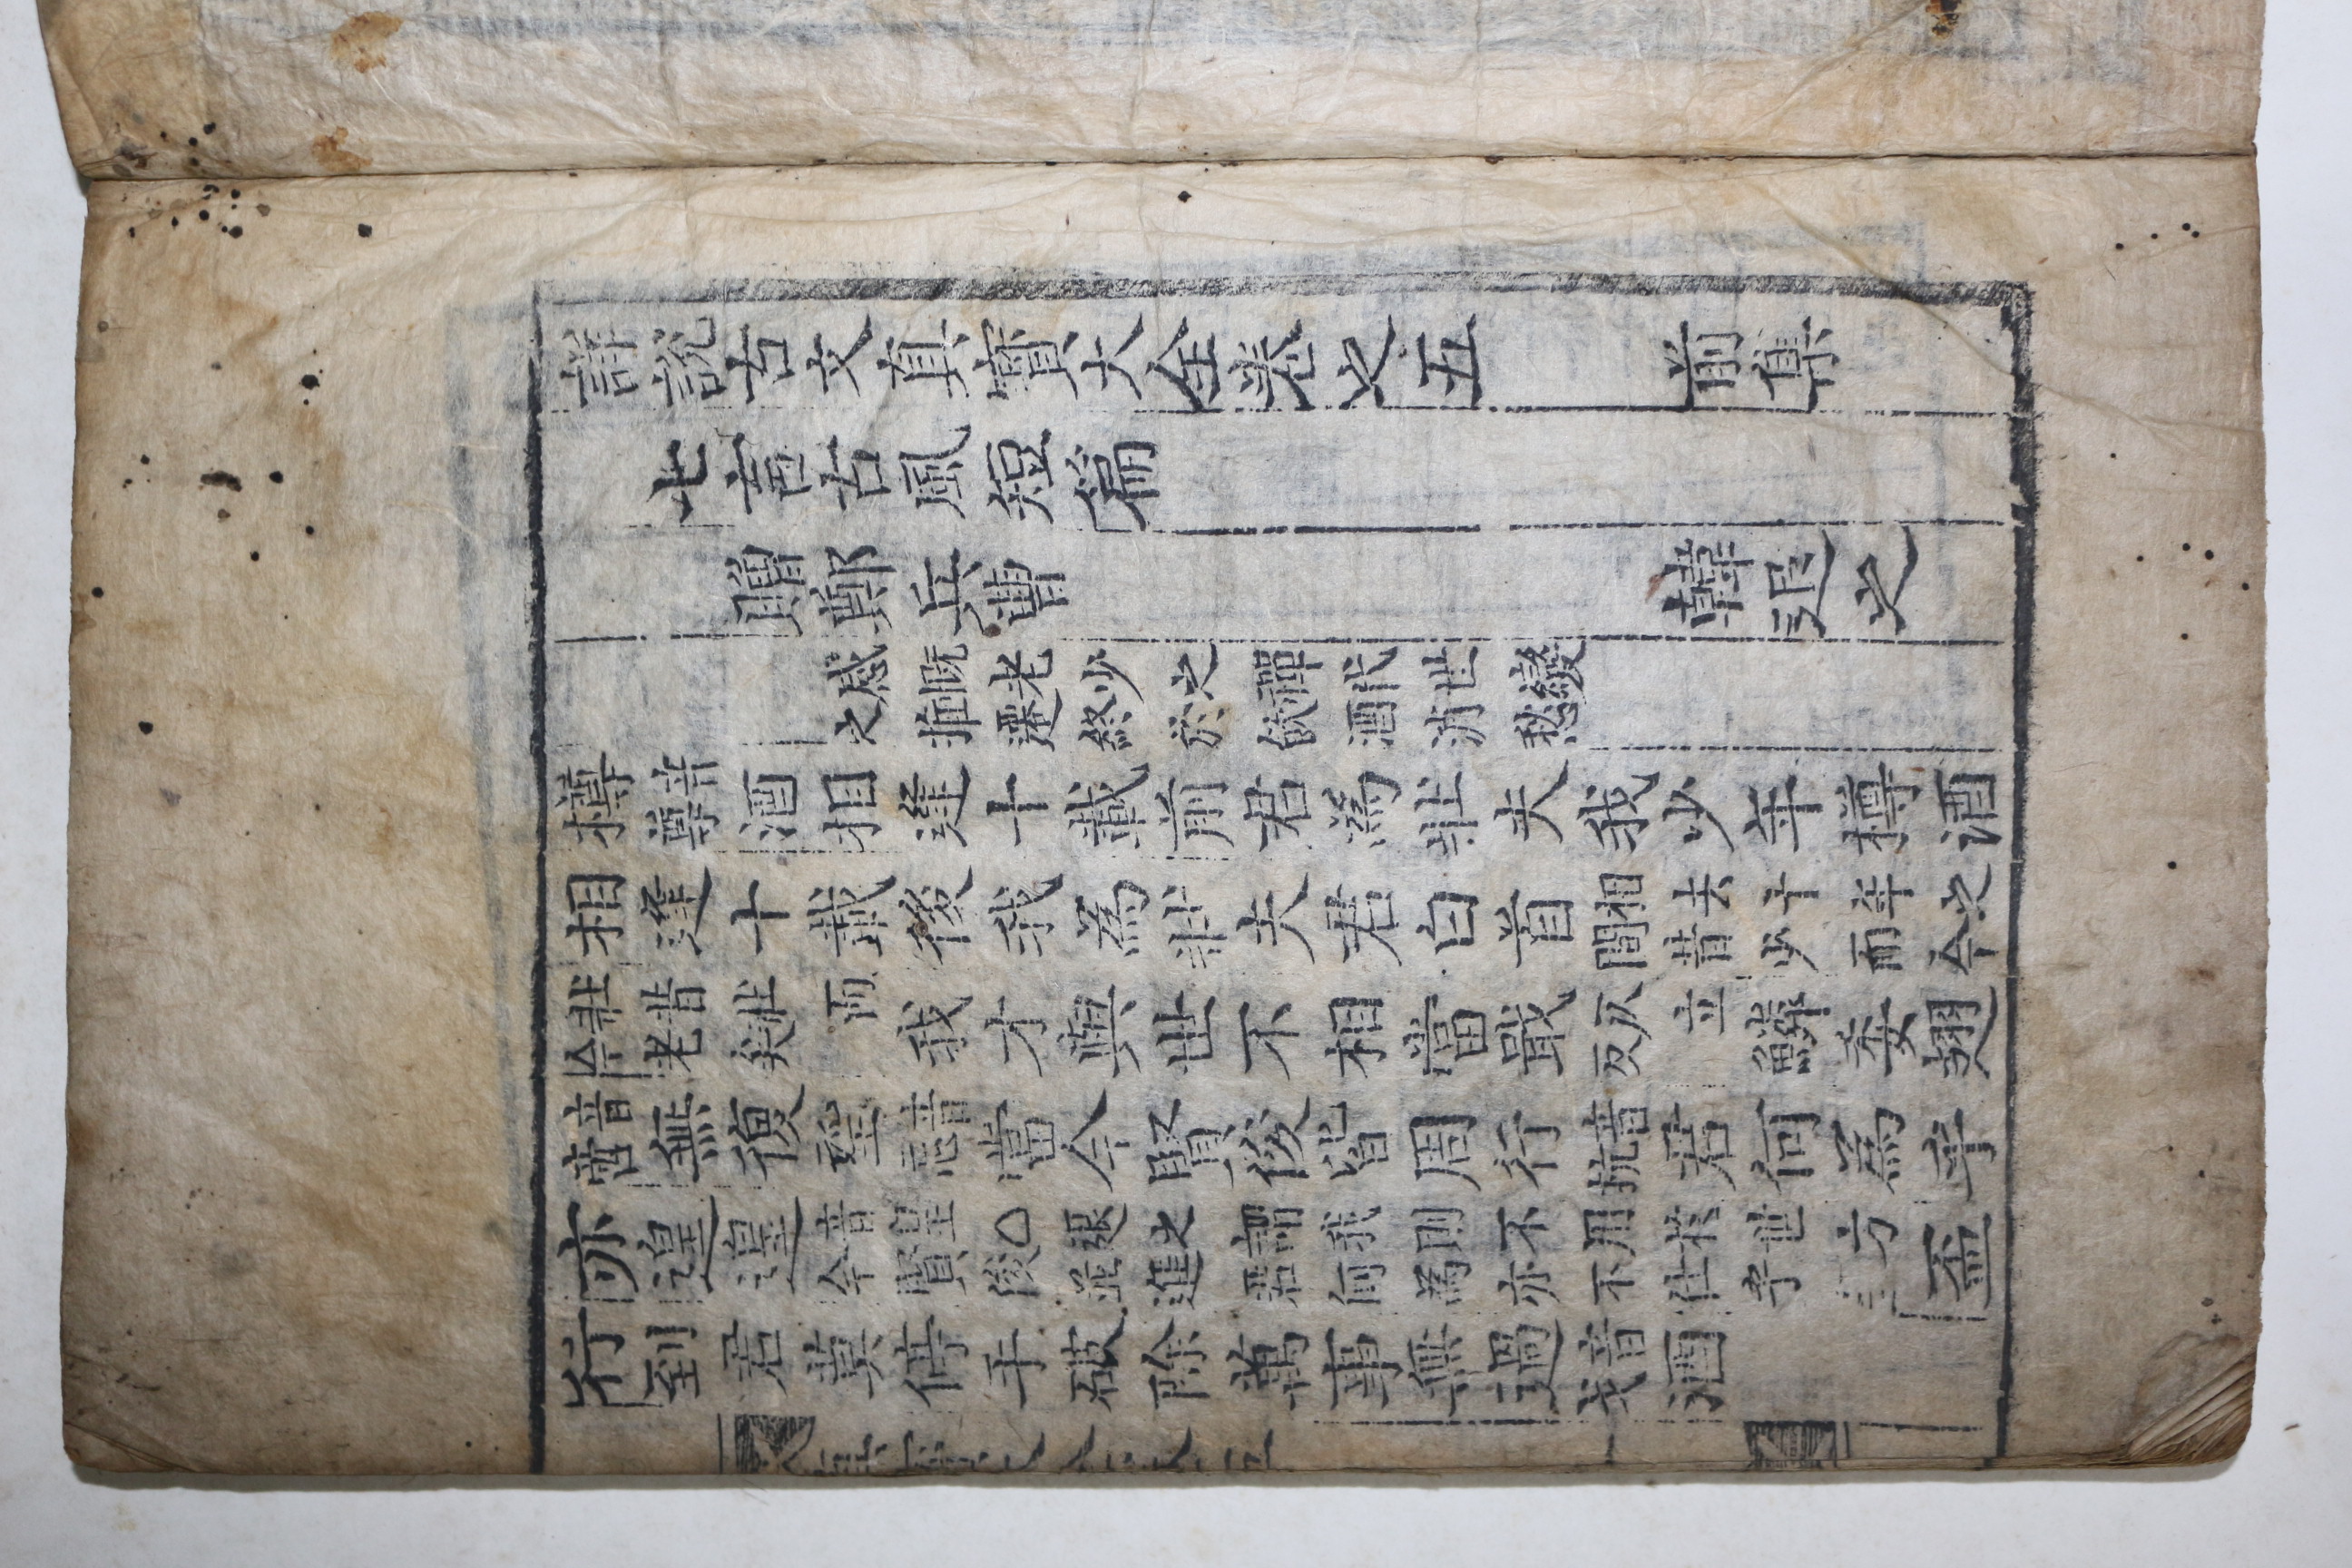 詳說古文真寶大全卷之五 前集
七言古風短篇
贈鄭兵曹 韓退之
感慨老少之禪代世變
之推遷終於飮酒消愁
樽音尊酒相逢十載前君為壯夫我少年樽酒
相逢十載後我為壯夫君白首相去十年之間昔少而今
壯昔壯而今老矣我才與世不相當戢仄立反鱗委翅
音啻無復望音忘當今賢俊皆周行音抗君何為乎
亦遑遑音皇○退之謂我則不用於世方今賢俊並進君何為亦不仕乎盃
行到君莫停手破除萬事無過音戈酒